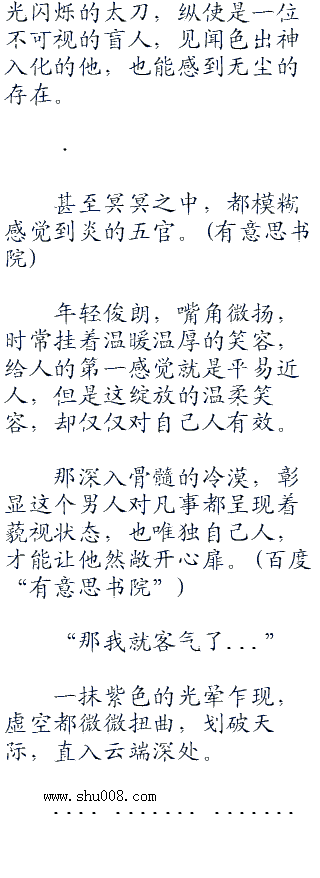 光闪烁的太刀，纵使是一位
不可视的盲人，见闻色出神
入化的他，也能感到无尘的
存在。
.
甚至冥冥之中，都模糊
感觉到炎的五官。(有意思书
院)
年轻俊朗，嘴角微扬，
时常挂着温暖温厚的笑容，
给人的第一感觉就是平易近
人，但是这绽放的温柔笑
容，却仅仅对自己人有效。
那深入骨髓的冷漠，彰
显这个男人对凡事都呈现着
藐视状态，也唯独自己人，
才能让他然敞开心扉。(百度
“有意思书院”)
“那我就客气了...”
一抹紫色的光晕乍现，
虚空都微微扭曲，划破天
际，直入云端深处。
www.shu008.com
.... ....... .......